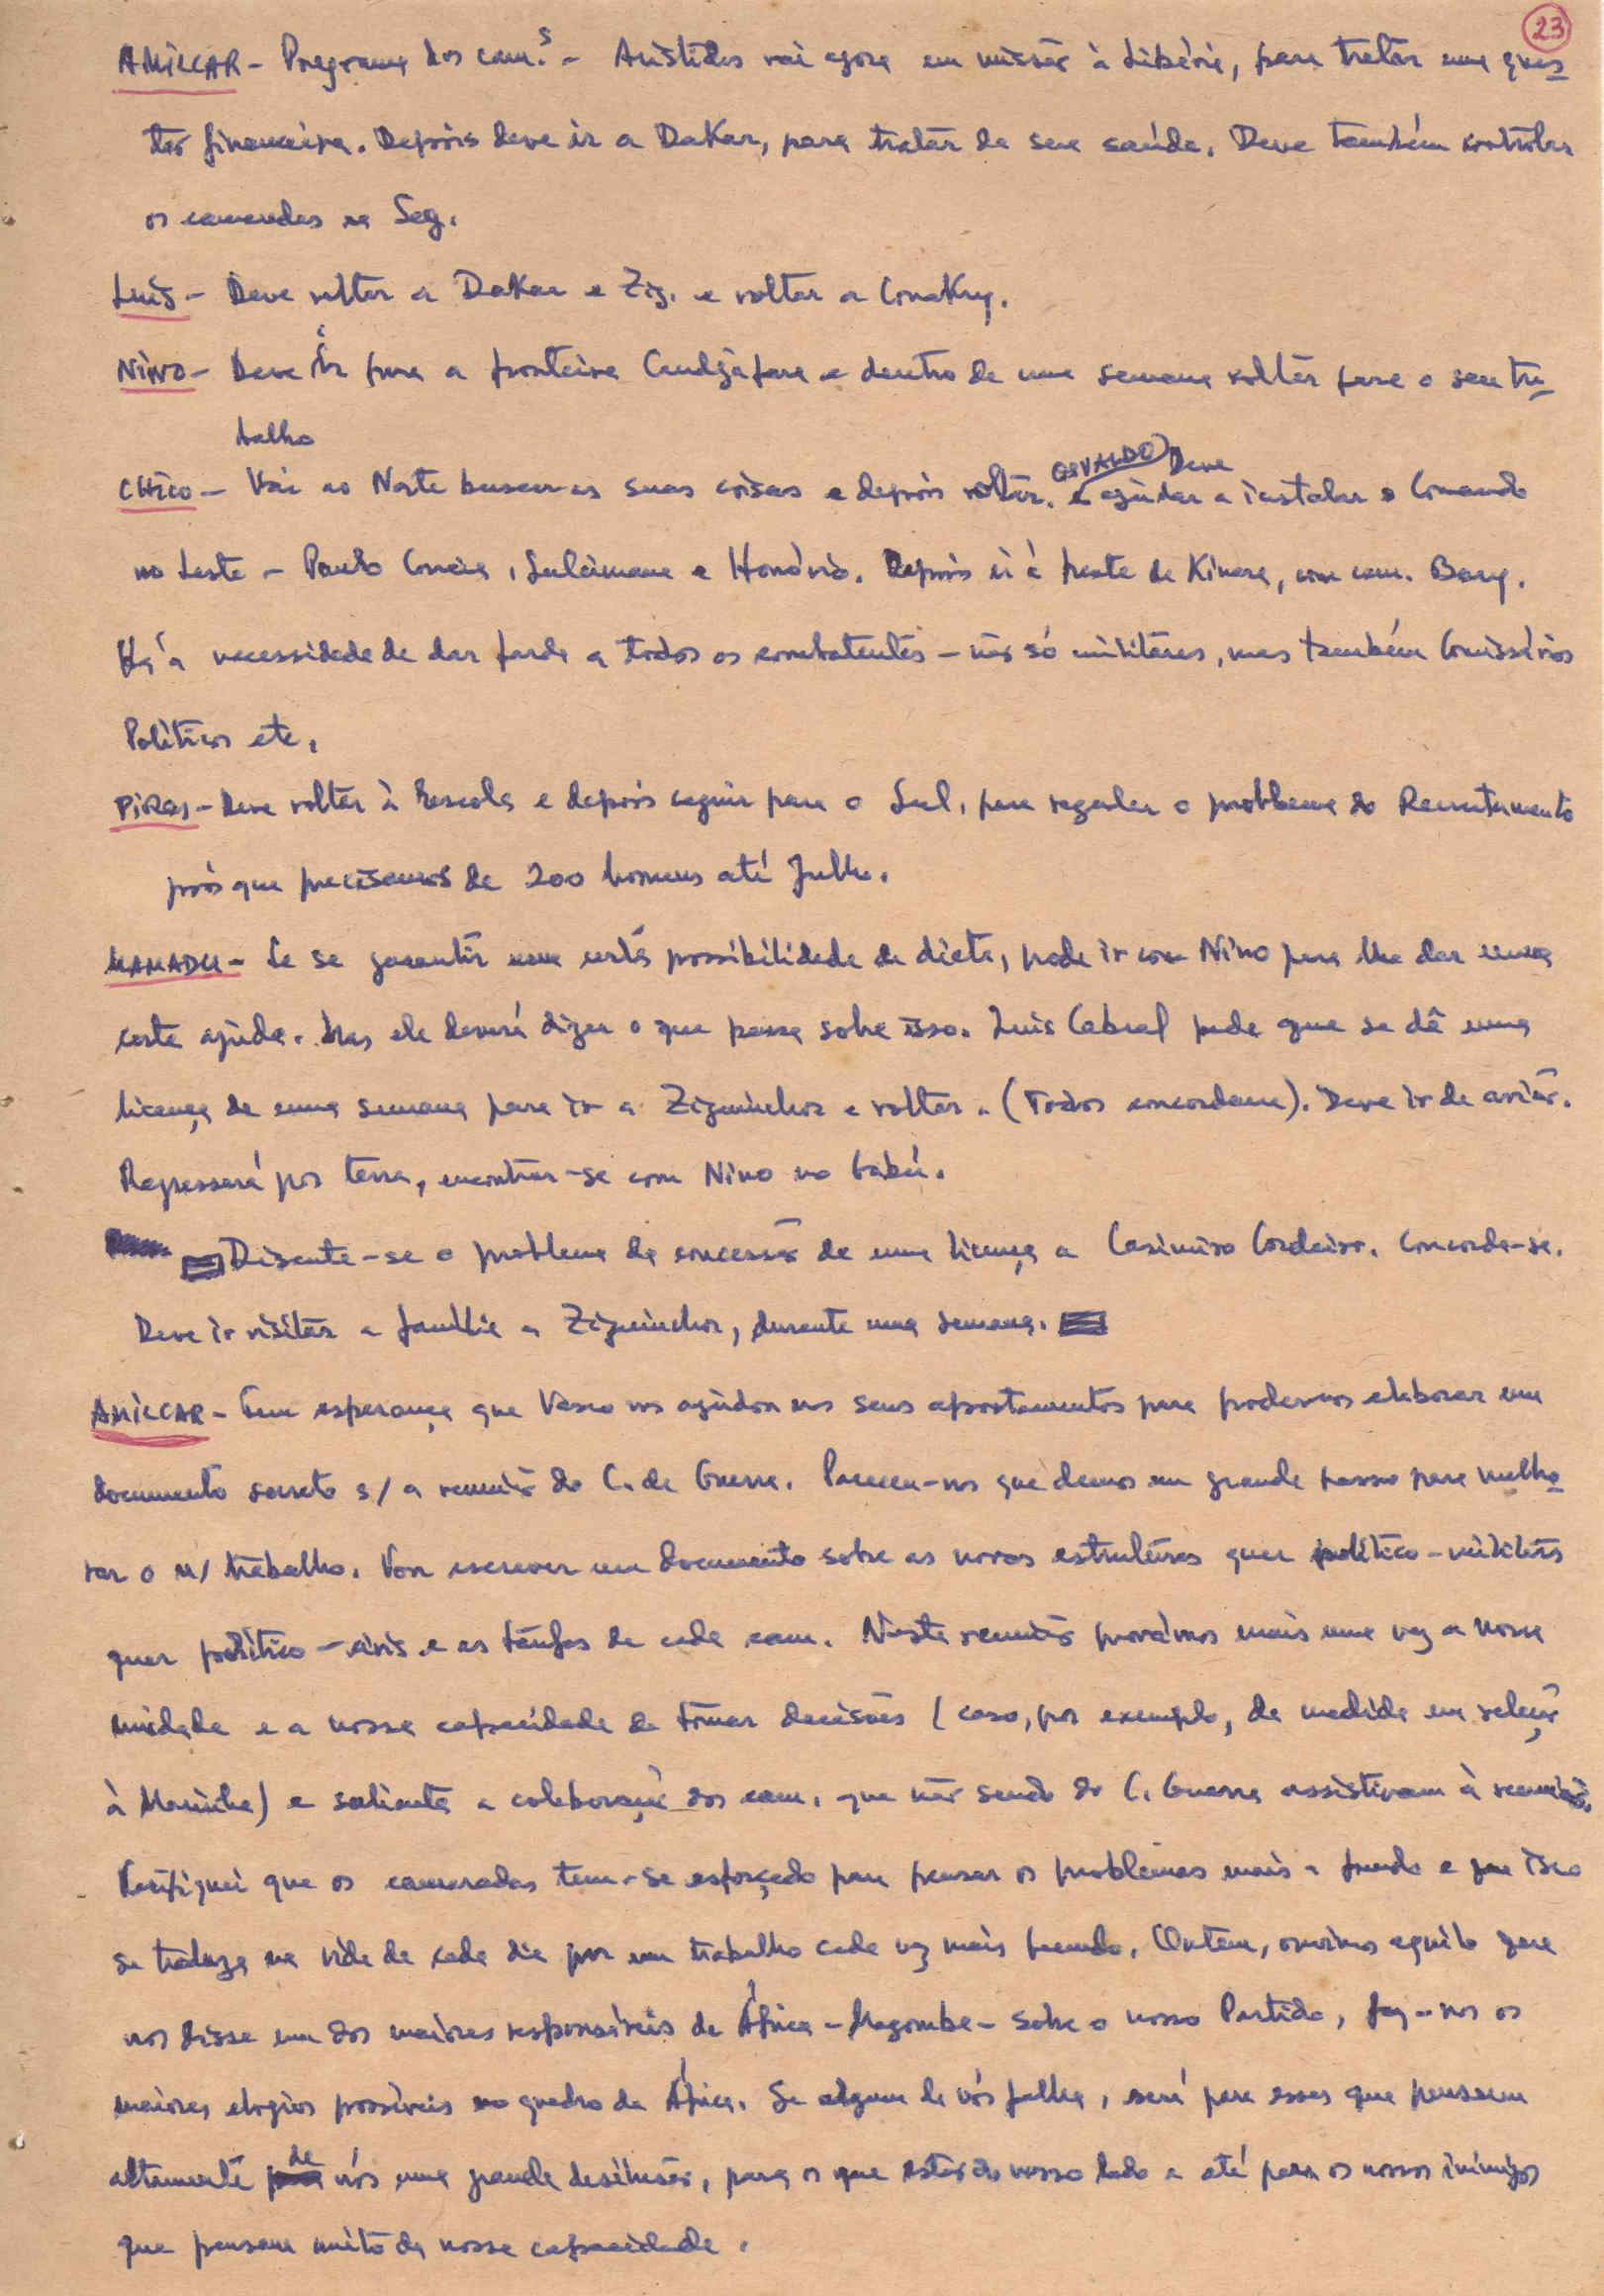 23
AMILCAR - Programa dos cam.s - Aristides vai agora em missão à Libéria, para tratar uma ques-
tão financeira. Depois deve ir a Dakar, para tratar da sua saúde. Deve também controlar
os camaradas na Seg.
Luiz - Deve voltar a Dakar e Zig. e voltar a Conakry.
NINO - Deve ir para a fronteira Candjafara e dentro de uma semana voltar para o seu tra-
balho
CHICO - Vai ao Norte buscar as suas coisas e depois voltar. OSVALDO Deve ajudar a instalar o Comando
no Leste - Paulo Correia, Suleimane e Honório. Depois ir à frente de Kinara, com cam. Bary.
Há a necessidade de dar farda a todos os combatentes - não só militares, mas também Comissários
Políticos etc.
PIRES - Deve voltar à Escola e depois seguir para o Sul, para regular o problema do Recrutamento
pois que precisamos de 200 homens até Julho.
MAMADU - Se se garantir uma certa possibilidade de dieta, pode ir com Nino para lhe dar uma
certa ajuda. Mas ele deverá dizer o que pensa sobre isso. Luis Cabral pede que se dê uma
licença de uma semana para ir a Ziguinchor e voltar. (Todos concordam). Deve ir de avião.
Regressará por terra, encontrar-se com Nino no Gabú.
Discute-se o problema da concessão de uma licença a Casimiro Cordeiro. Concorda-se.
Deve ir visitar a família a Ziguinchor, durante uma semana.
AMILCAR - Tem esperança que Vasco nos ajudou nos seus apontamentos para podermos elaborar um
documento secreto s/ a reunião do C. de Guerra. Pareceu-nos que demos um grande passo para melho-
rar o n/ trabalho. Vou escrever um documento sobre as novas estruturas quer político-militares
quer político-civis e as tarefas de cada cam. Nesta reunião provámos mais uma vez a nossa
unidade e a nossa capacidade de tomar decisões (caso, por exemplo, da medida em relação
à Marinha) e salienta a colaboração dos cam. que não sendo do C. Guerra assistiram à reunião.
Verifiquei que os camaradas tem-se esforçado para pensar os problemas mais a fundo e que isso
se traduza na vida de cada dia por um trabalho cada vez mais fecundo. Ontem, ouvimos aquilo que
nos disse um dos maiores responsáveis de África - Magombe - sobre o nosso Partido, fez-nos os
maiores elogios possíveis no quadro da África. Se algum de nós falha, será para esses que pensam
altamente de nós uma grande desilusão, para os que estão do nosso lado e até para os nossos inimigos
que pensam muito da nossa capacidade.